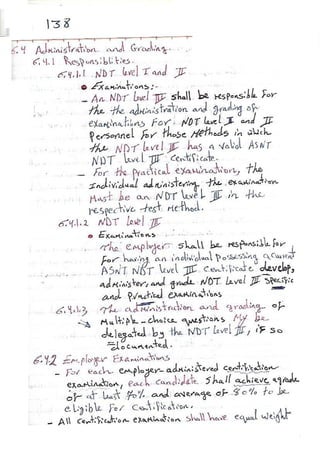 138
6.4 Administration and Grading.
6.4.1 Responsibilities.
6.4.1.1 NDT level I and II
• Examinations:-
- An NDT level III shall be responsible For
the the administration and grading of
examinations For NDT level I and II
Personnel For those Methods in which
the NDT level III has a valid ASNT
NDT level III certificate.
- For the Practical examination, the
Individual administering the examination
Must be an NDT level III in the
respective test Method.
6.4.1.2 NDT level III
• Examinations
The employer shall be responsible for
For having an individual Possessing a current
ASNT NDT level III certificate develop,
administer, and grade NDT level III Specific
and Practical examinations
6.4.1.3 The administration and grading of
Multiple-choice questions My be
delegated by the NDT level III, if so
documented.
6.4.2 Employer Examinations
- For each employer-administered certification
examination, each candidate shall achieve a grade
of at least 70% and average of 80% to be
eligible For Certification.
- All Certification examination shall have equal weight